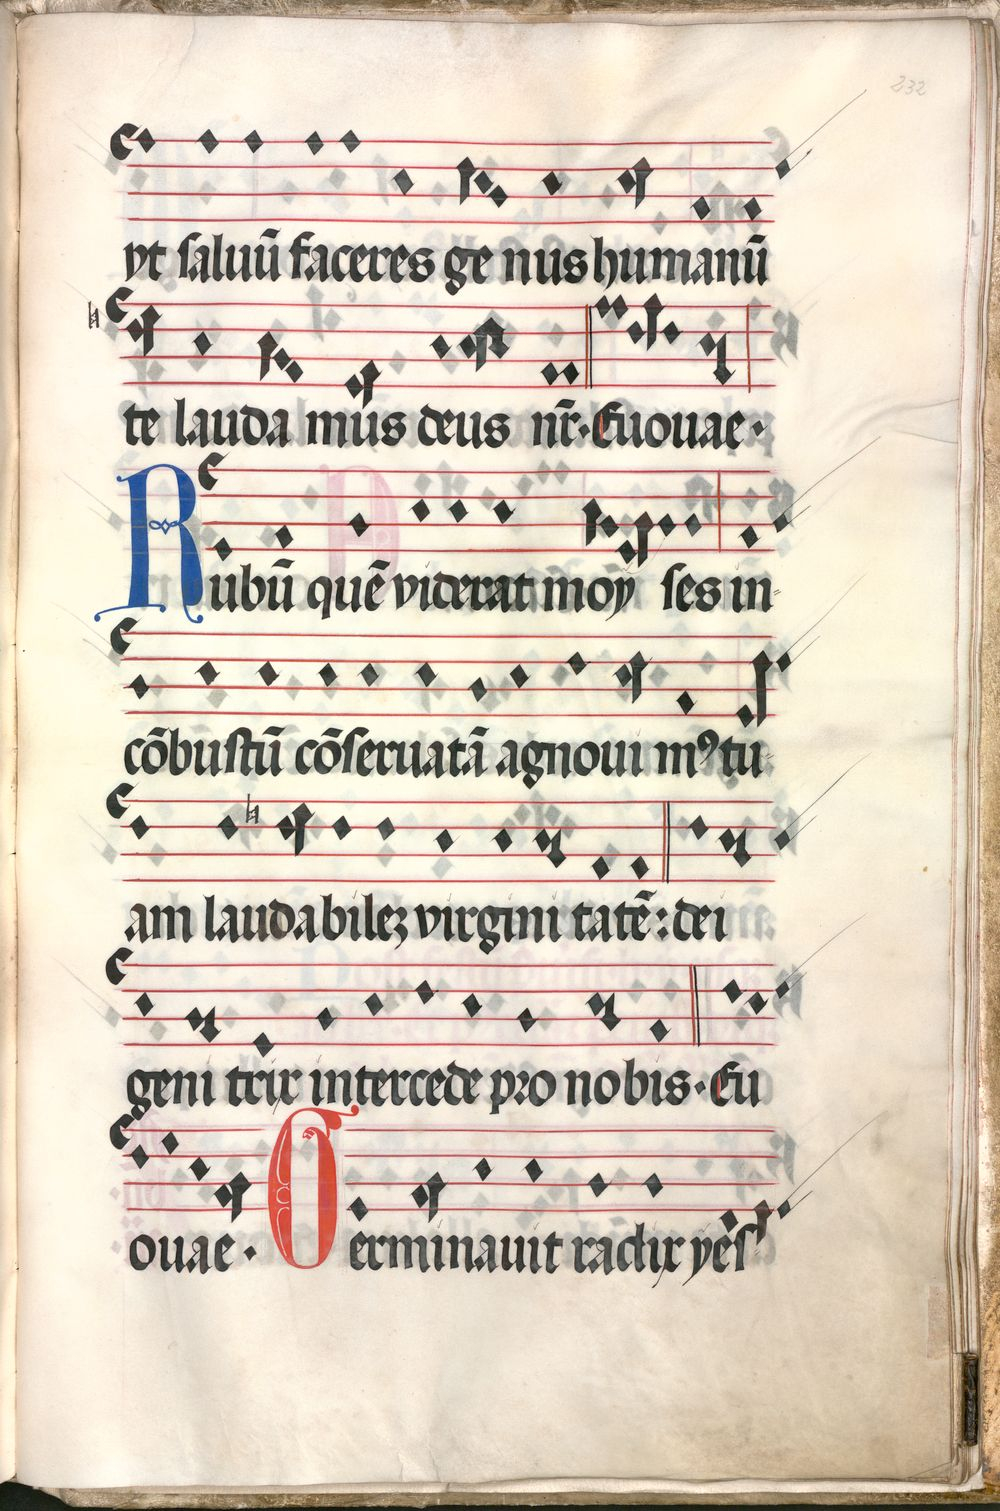 232
vt saluū faceres ge nus humanū
te lauda mus deus nr̄. Euouae.
Rubū quē viderat moy ses in
cōbustū cōseruatā agnoui mꝰ tu
am laudabileꝫ virgini tatē: dei
geni trix intercede pro nobis. Eu
ouae. Germinauit radix yes